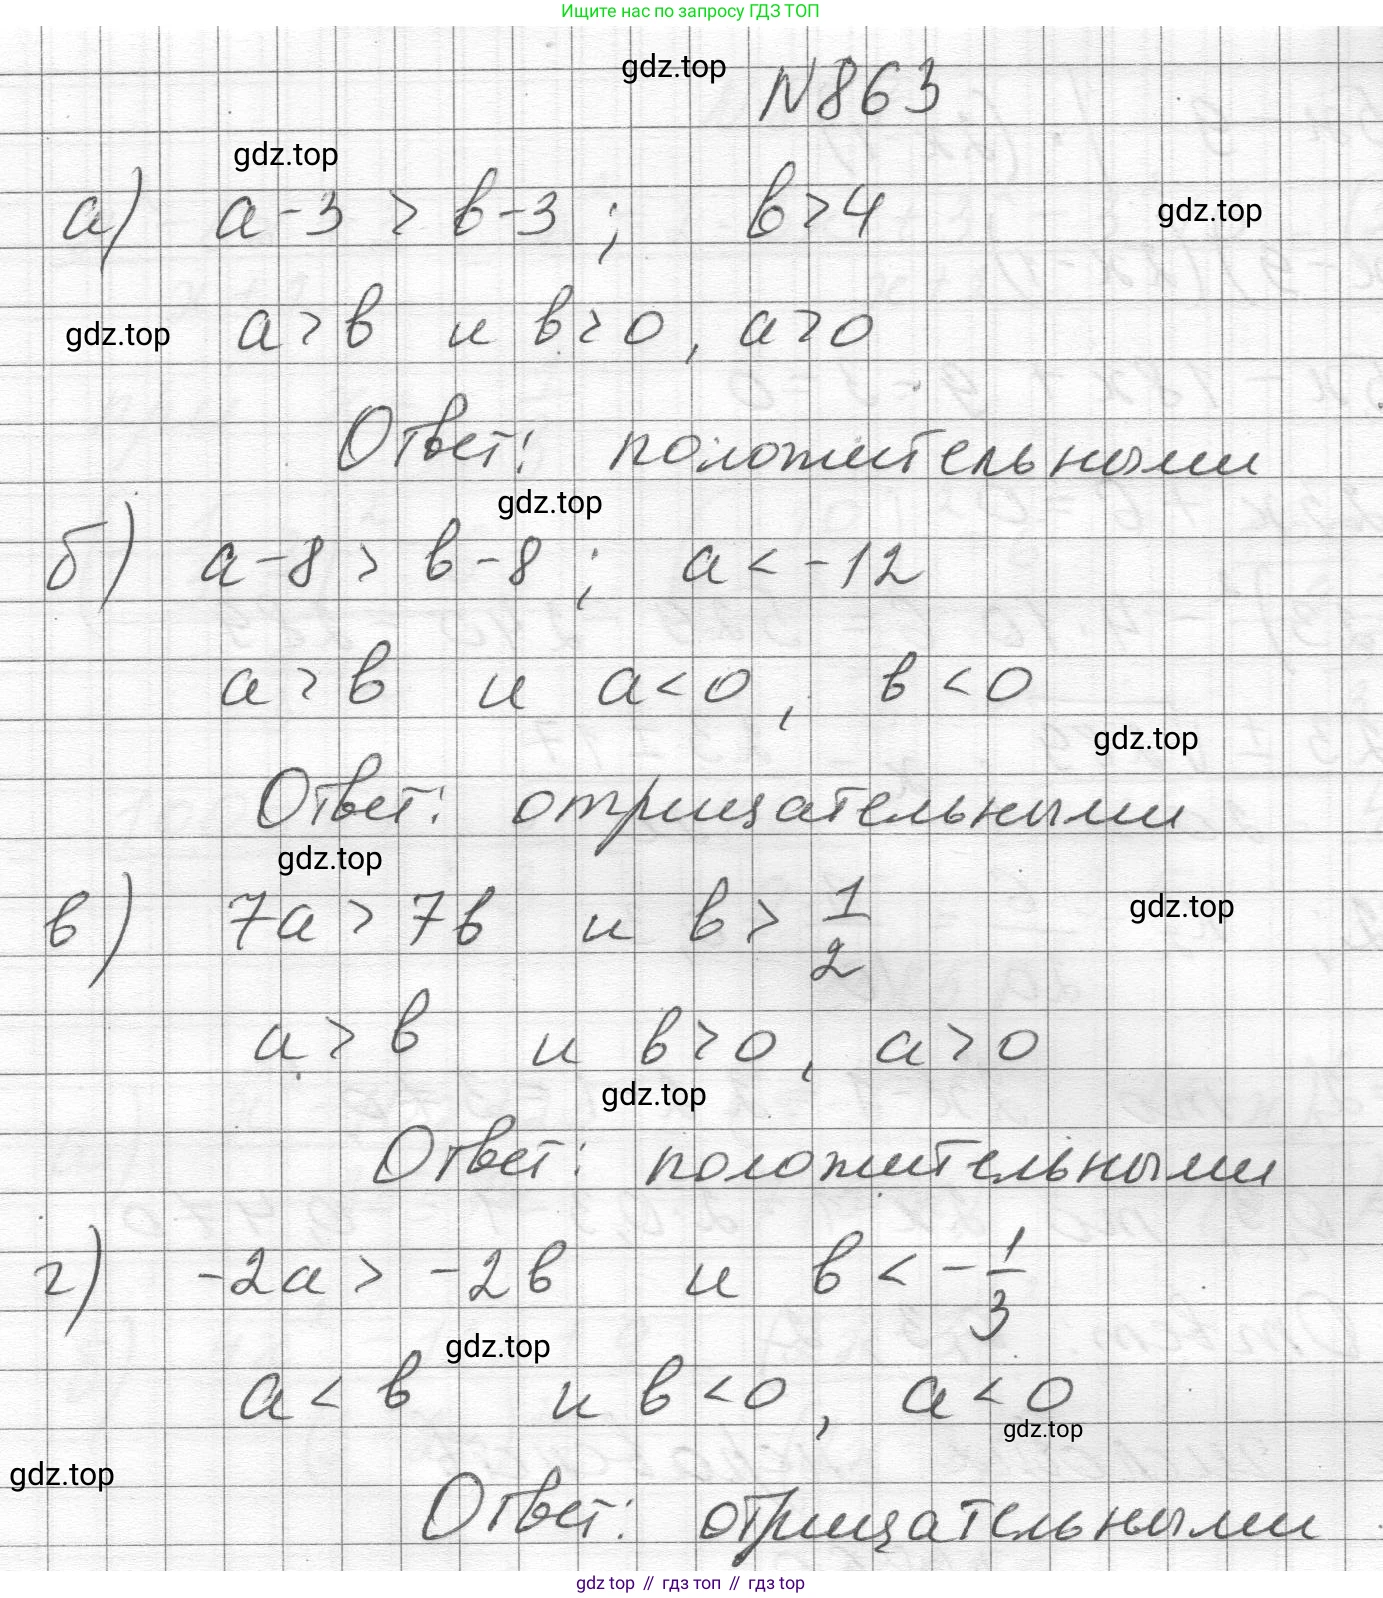 Ищите нас по запросу ГДЗ ТОП
gdz.top
N863
gdz.top
а) a-3 > b-3 ; b>4
gdz.top
gdz.top
a>b и b>0, a>0
Ответ: положительными
gdz.top
б) a-8 > b-8 ; a < -12
a > b и a<0, b<0
gdz.top
Ответ: отрицательными
gdz.top
в) 7a > 7b и b > 1/2
gdz.top
a > b и b>0, a>0
gdz.top
Ответ: положительными
г) -2a > -2b и b < -1/3
gdz.top
a < b и b<0, a<0
gdz.top
gdz.top
Ответ: отрицательными
gdz top // гдз топ // gdz top